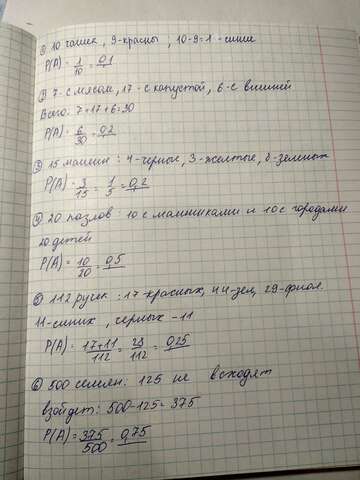 1) 10 чашек, 9-красны, 10-9=1-синие
P(A)= 1/10 = 0,1
2) 7-с мясом, 17-с капустой, 6-с вишней
Всего: 7+17+6=30
P(A)= 6/30 = 0,2
3) 15 машин: 4-черные, 3-желтые, 8-зеленых
P(A)= 3/15 = 1/5 = 0,2
4) 20 пазлов: 10 с машинками и 10 с городами
20 детей
P(A)= 10/20 = 0,5
5) 112 ручек: 17 красных, 44-зел, 29-фиол.
11-синих, черных-11
P(A)= 17+11/112 = 28/112 = 0,25
6) 500 семян: 125 не всходят
взойдет: 500-125=375
P(A)= 375/500 = 0,75